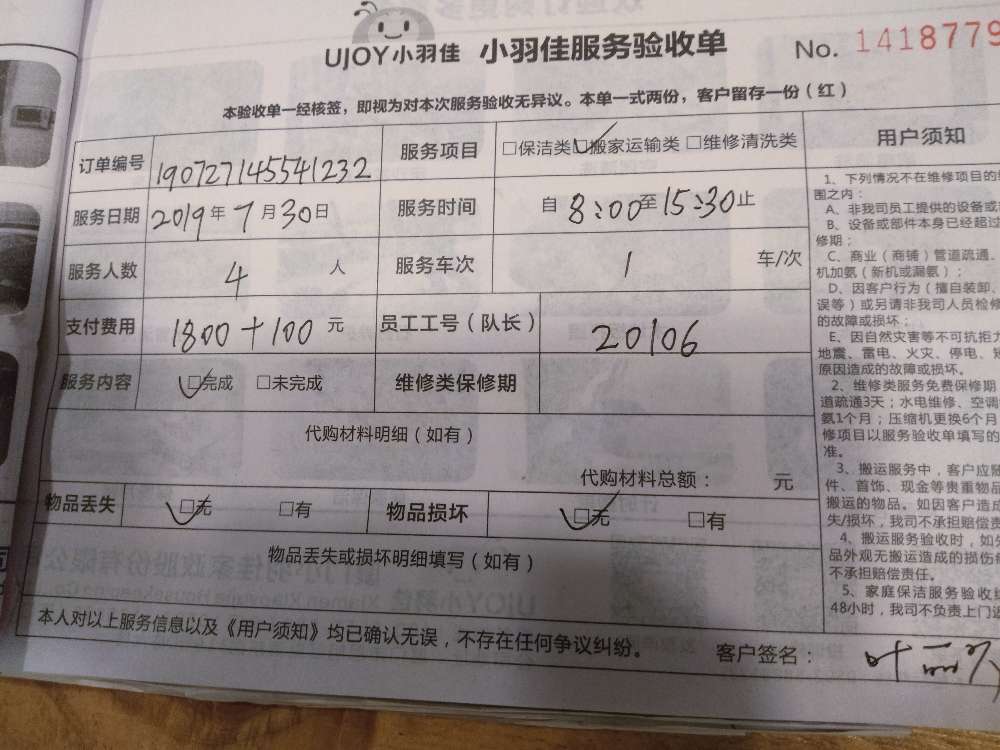 UJOY小羽佳 小羽佳服务验收单 No. 1418779
本验收单一经核签，即视为对本次服务验收无异议。本单一式两份，客户留存一份（红）
订单编号 190727145541232 服务项目 □保洁类 □搬家运输类 □维修清洗类
服务日期 2019年7月30日 服务时间 自8:00至15:30止
服务人数 4 人 服务车次 1 车/次
支付费用 1800+100 元 员工工号（队长） 20106
服务内容 □完成 □未完成 维修类保修期
代购材料明细（如有）
代购材料总额： 元
物品丢失 □无 □有 物品损坏 □无 □有
物品丢失或损坏明细填写（如有）
本人对以上服务信息以及《用户须知》均已确认无误，不存在任何争议纠纷。 客户签名： 叶
用户须知
1、下列情况不在维修项目的
围之内：
A、非我司员工提供的设备或
B、设备或部件本身已经超过
修期；
C、商业（商铺）管道疏通、
机加氨（新机或漏氨）；
D、因客户行为（擅自装卸、
误等）或另请非我司人员检修
的故障或损坏；
E、因自然灾害等不可抗拒力
地震、雷电、火灾、停电、
原因造成的故障或损坏。
2、维修类服务免费保修期
道疏通3天；水电维修、空调
氨1个月；压缩机更换6个月
修项目以服务验收单填写的
准。
3、搬运服务中，客户应
件、首饰、现金等贵重物品
搬运的物品。如因客户造成
失/损坏，我司不承担赔偿责
4、搬运服务验收时，如
品外观无搬运造成的损伤
不承担赔偿责任。
5、家庭保洁服务验收
48小时，我司不负责上门